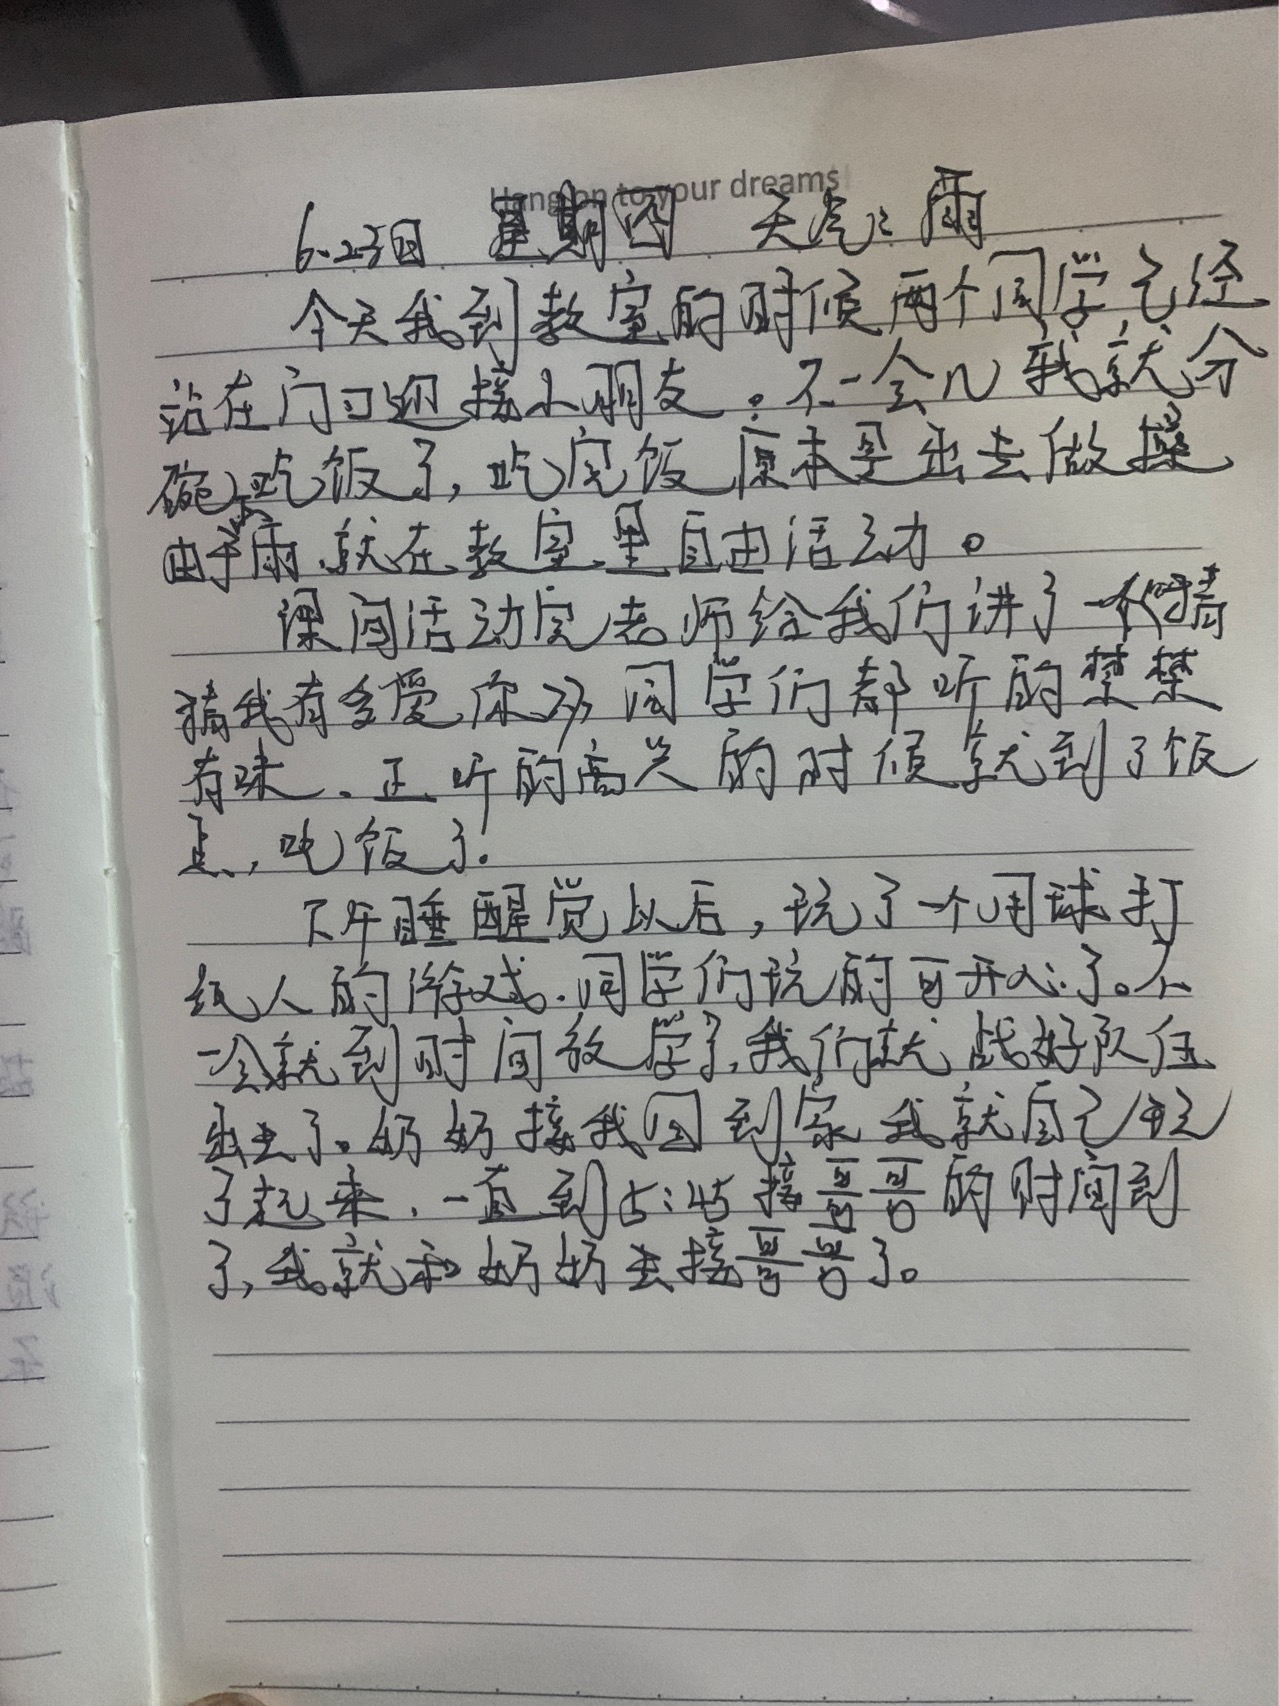 Hang on to your dreams
6.23日 星期四 天气:雨
今天我到教室的时候两个同学已经
站在门口迎接小朋友。不一会儿我就分
碗吃饭了,吃完饭原本是出去做操
由于下雨.就在教室里自由活动。
课间活动完老师给我们讲了一个猜
猜我有多爱你 同学们都听的禁禁
有味.正听的高兴的时候就到了饭
点,吃饭了.
下午睡醒觉以后,玩了一个用球打
纸人的游戏.同学们玩的可开心了。不
一会就到时间放学了,我们就战好队伍
出去了。奶奶接我回到家我就自己玩
了起来.一直到5:45接哥哥的时间到
了,我就和奶奶去接哥哥了。